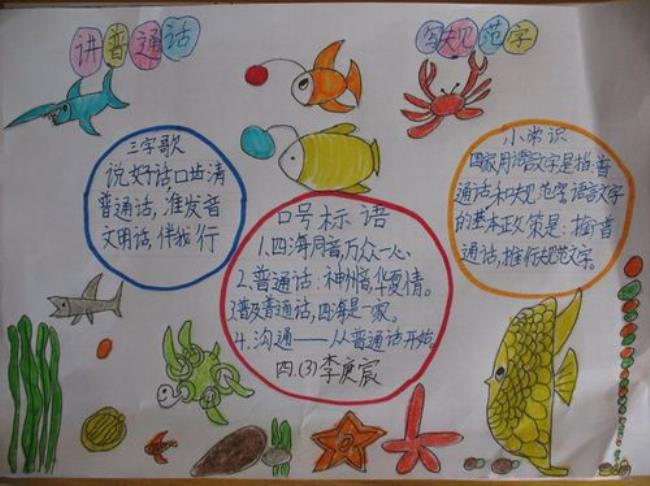 讲普通话
写规范字
三字歌
说好话口齿清
普通话,准发音
文明话,伴我行
口号标语
1.四海同音,万众一心、
2.普通话:神州音,华夏情。
3普及普通话,四海是一家。
4.沟通——从普通话开始。
四.(3)李庚宸
小常识
国家用语言文字是指:普
通话和规范字,语言文字
的基本政策是:推广普
通话,推行规范文字。